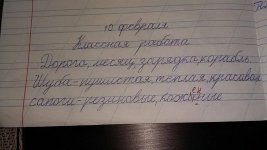 10 февраля
Классная работа
Дорога, месяц, зарядка, корабль.
Шуба - пушистая, тёплая, красивая
сапоги - резиновые,